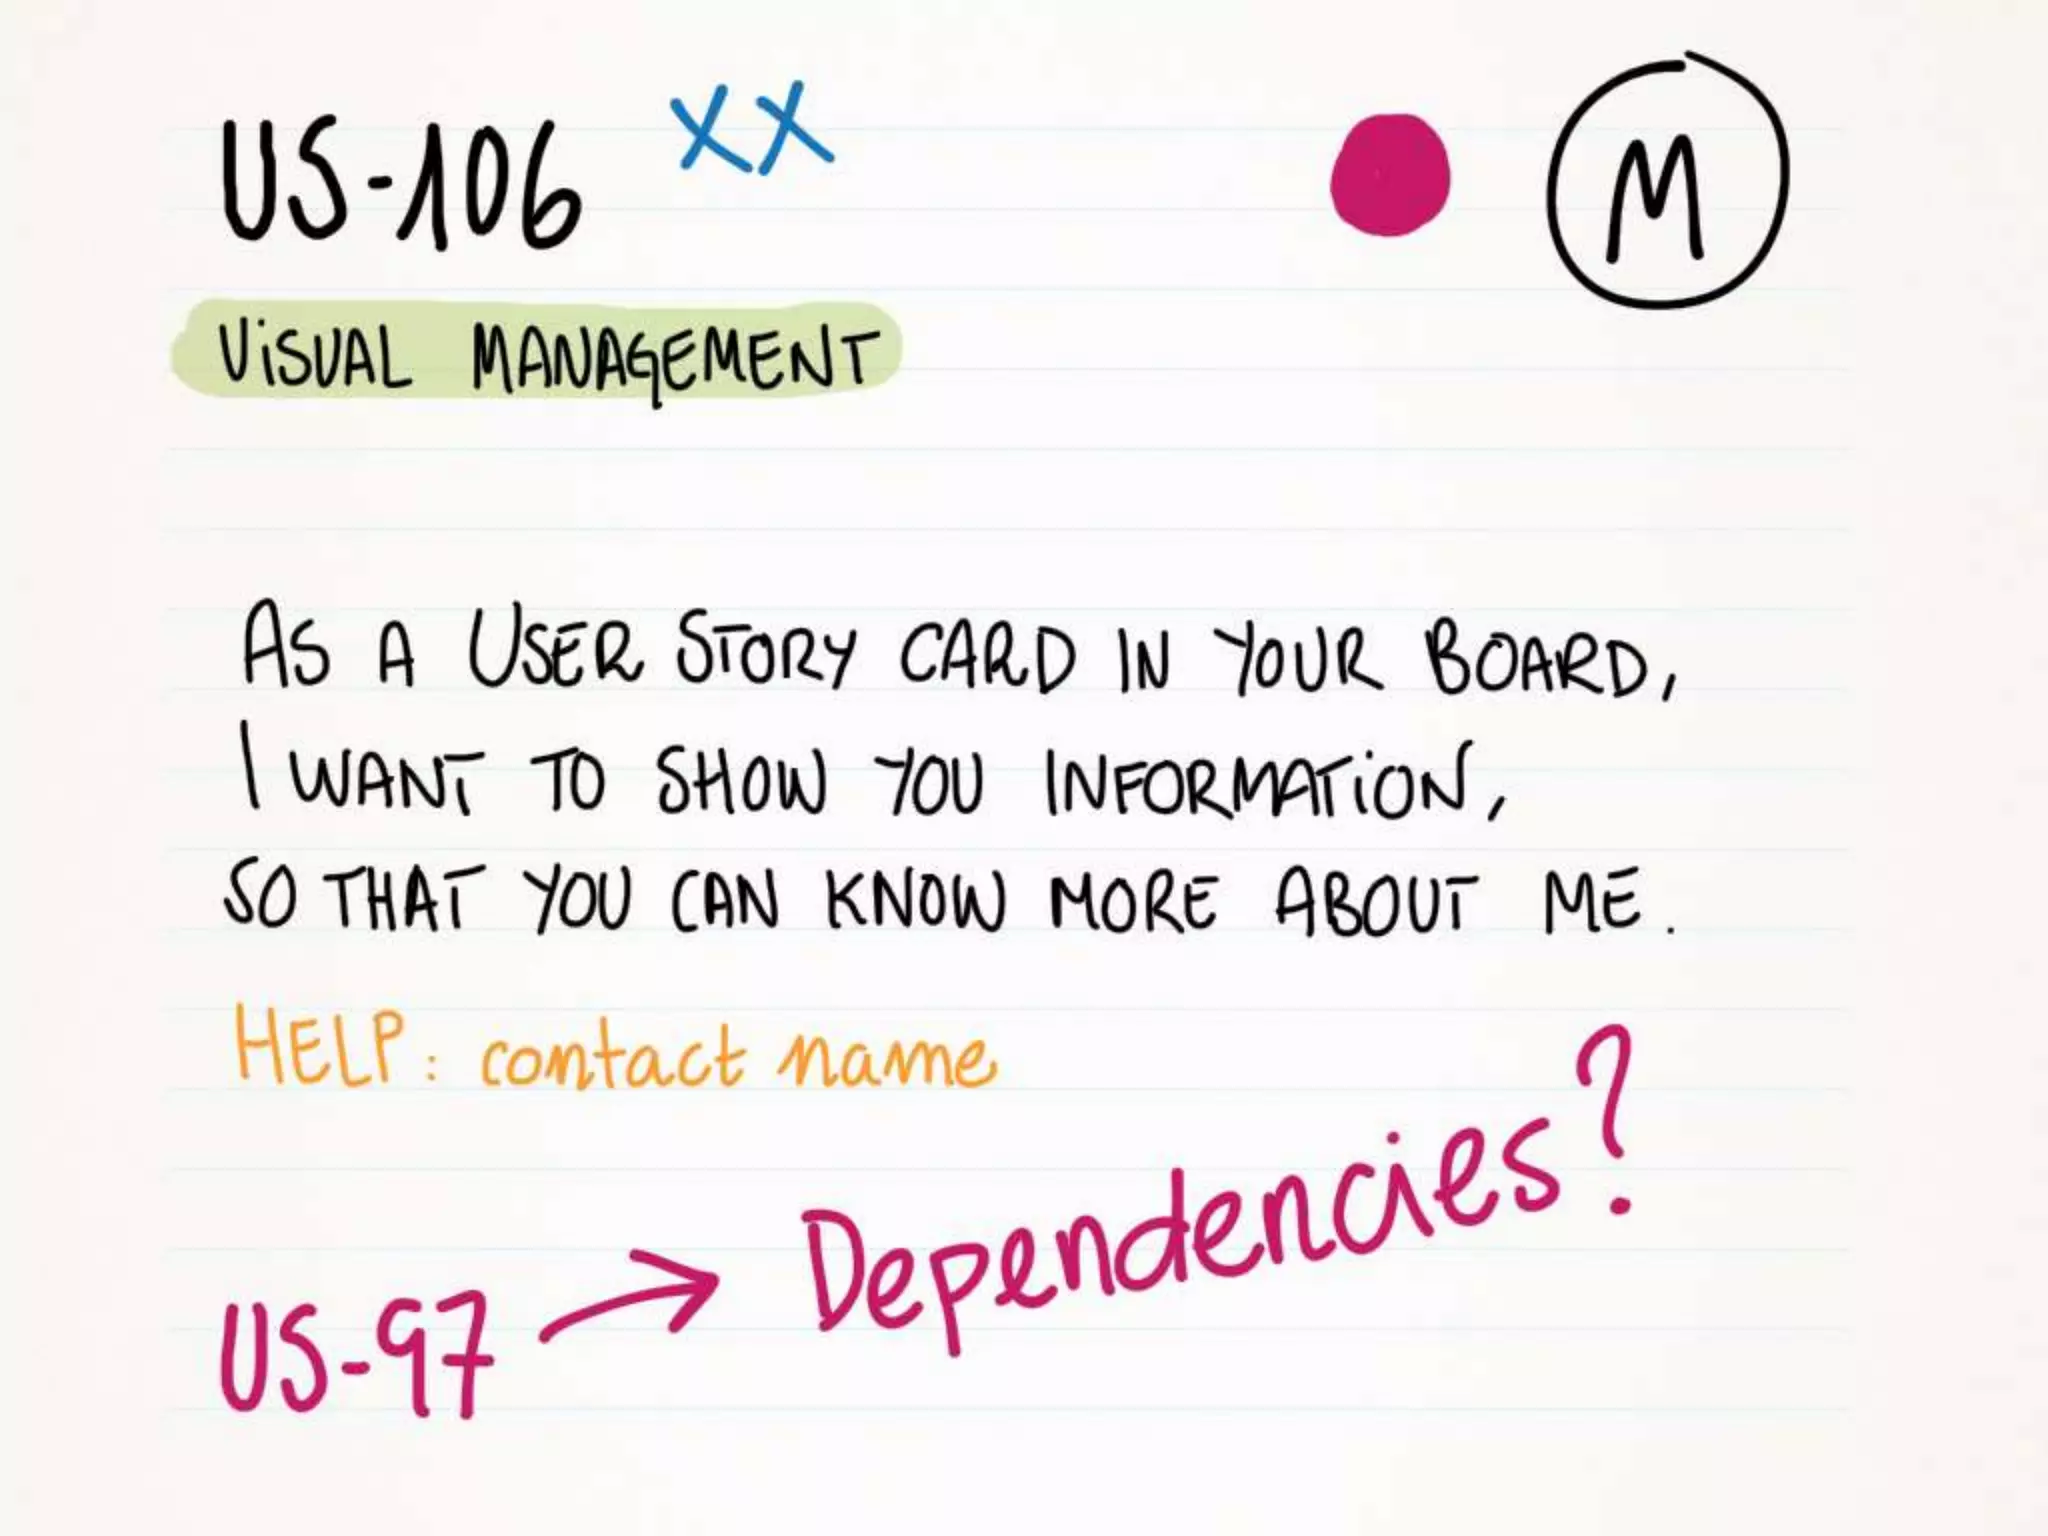 US-106 XX M
VISUAL MANAGEMENT
AS A USER STORY CARD IN YOUR BOARD,
I WANT TO SHOW YOU INFORMATION,
SO THAT YOU CAN KNOW MORE ABOUT ME.
HELP: contact name
US-97 → Dependencies?